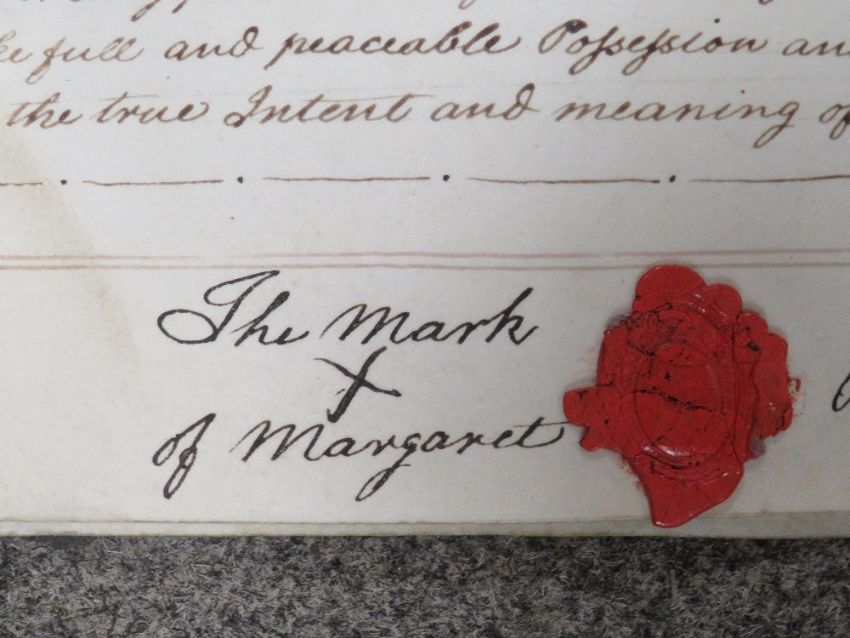 ke full and peaceable Poſseſsion an
the true Intent and meaning of
The Mark
X
of Margaret